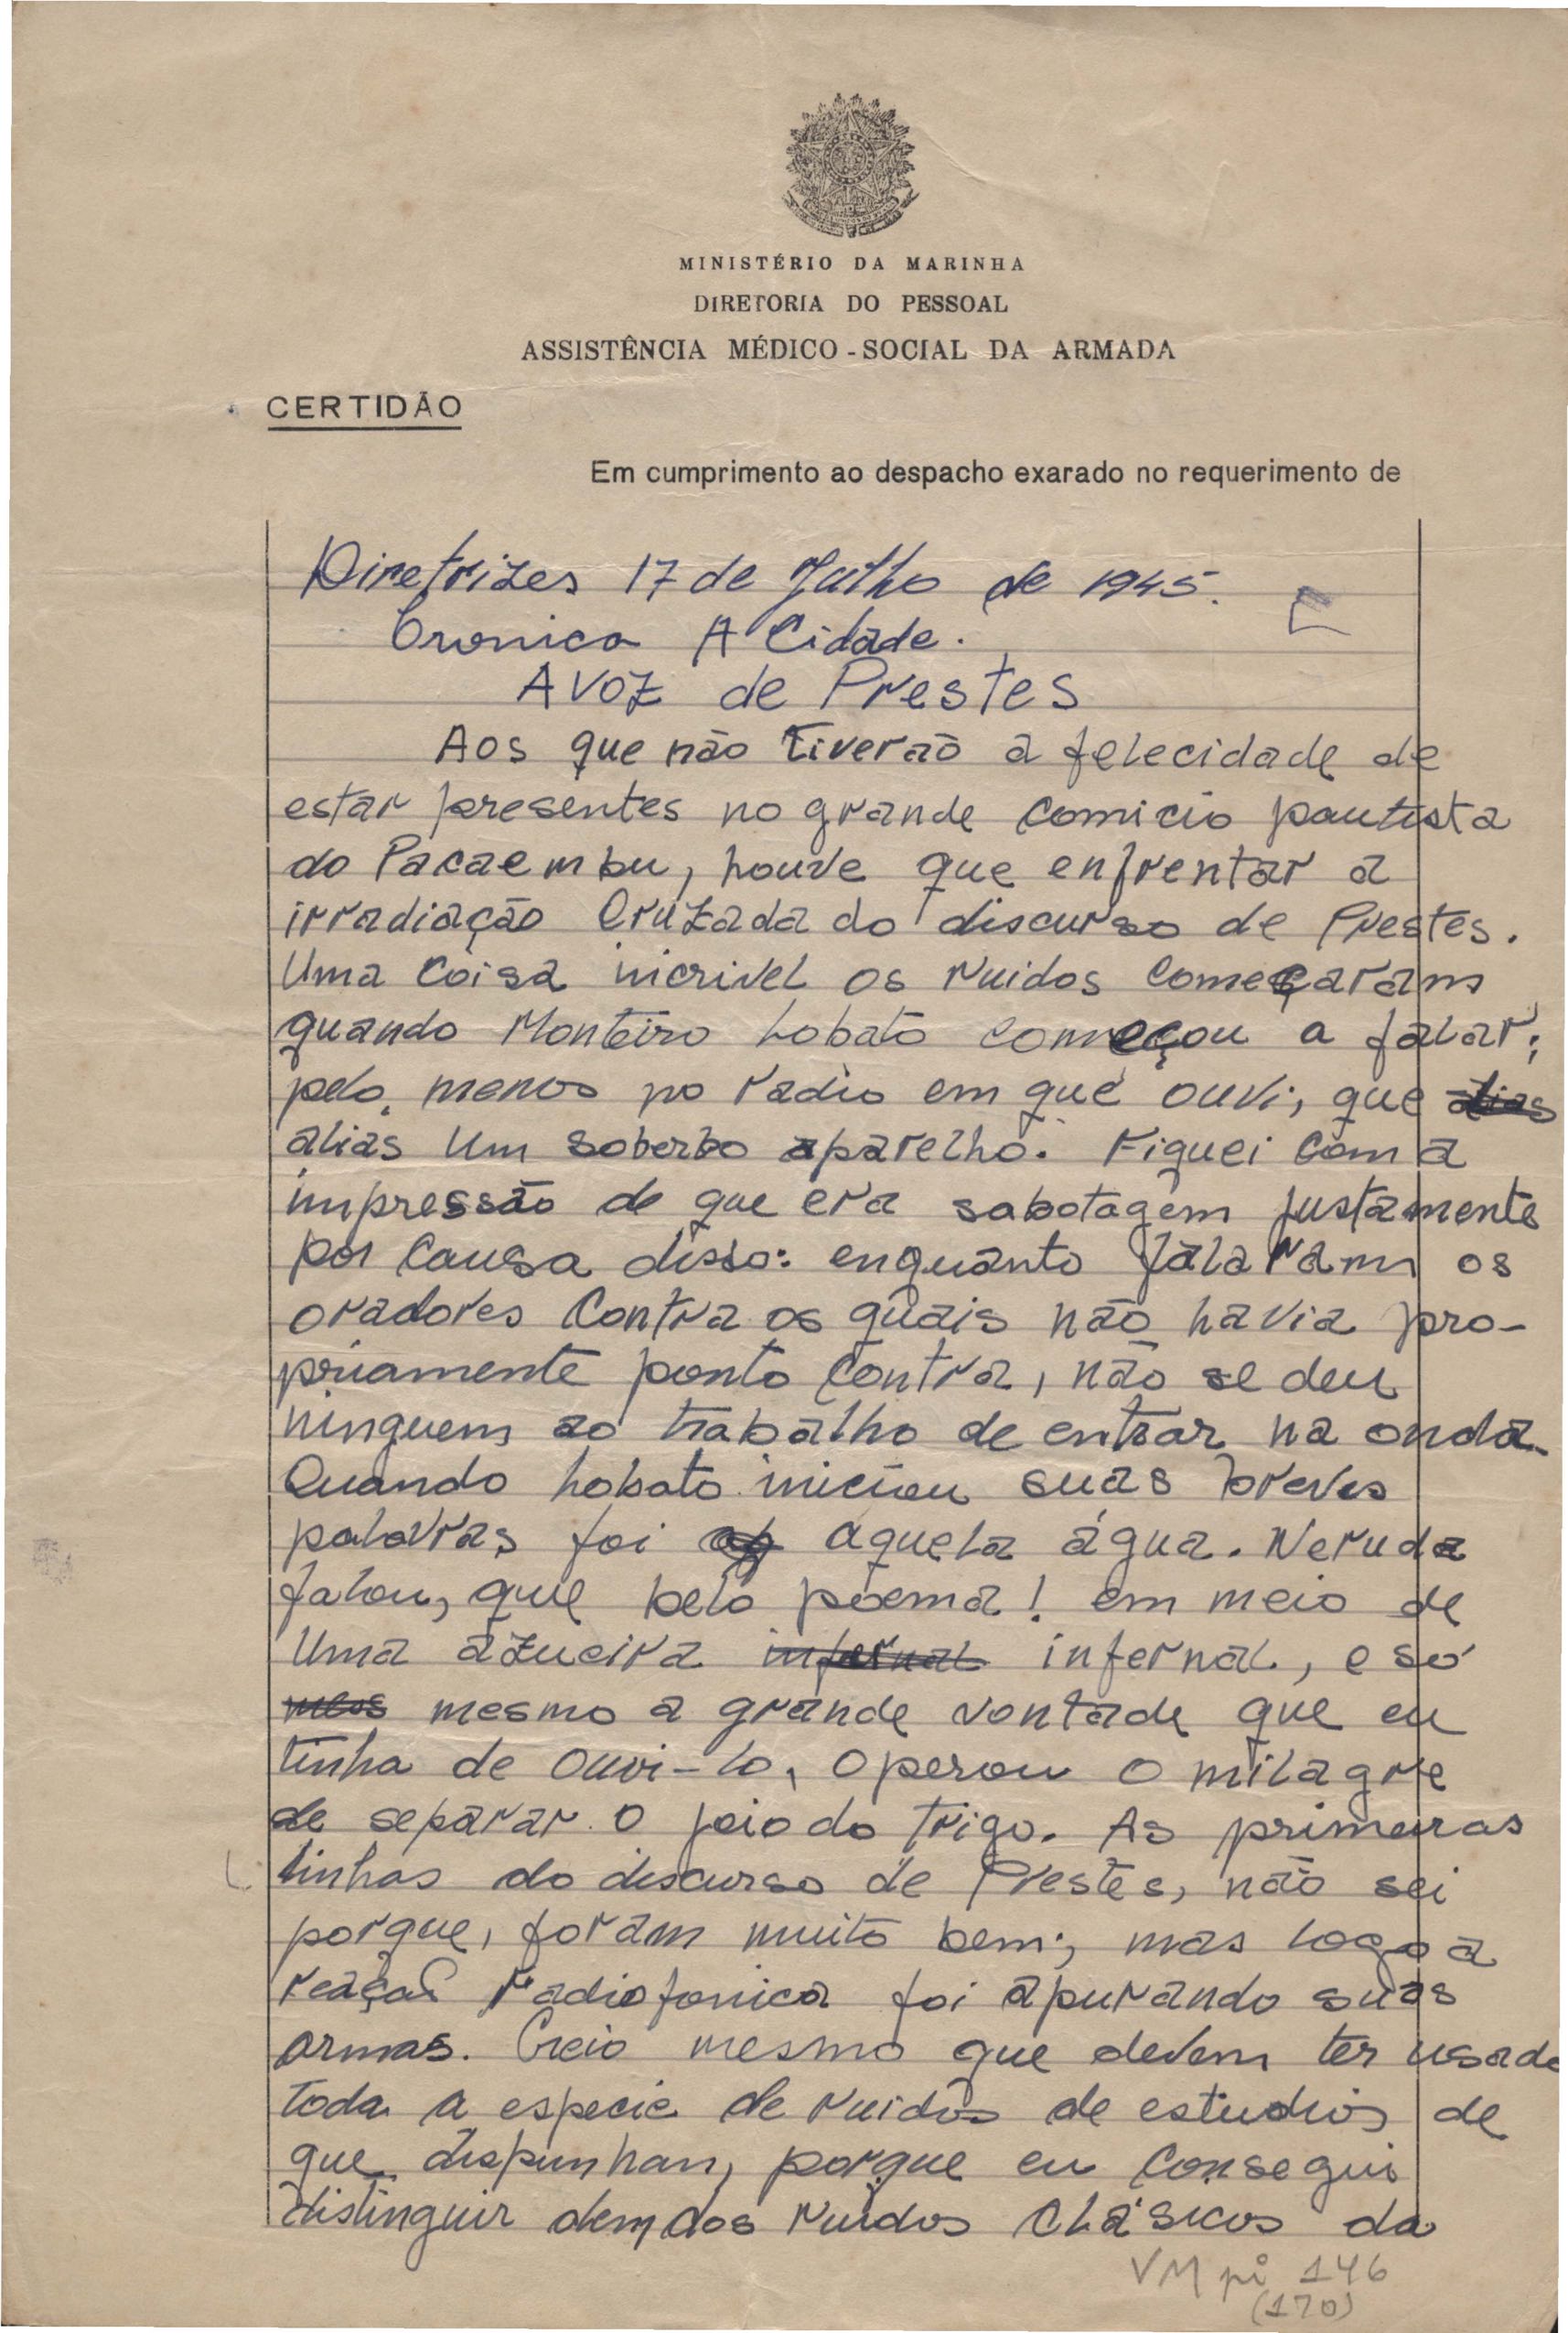 MINISTÉRIO DA MARINHA
DIRETORIA DO PESSOAL
ASSISTÊNCIA MÉDICO-SOCIAL DA ARMADA
CERTIDÃO
Em cumprimento ao despacho exarado no requerimento de
Diretrizes 17 de Julho de 1945.
Cronica A Cidade.
A VOZ de Prestes
Aos que não tiverão a felecidade de
estar presentes no grande comicio pautista
do Pacaembu, houve que enfrentar a
irradiação cruzada do discurso de Prestes.
Uma coisa incrivel os ruidos começaram
quando Monteiro Lobato começou a falar;
pelo menos no radio em que ouvi, que alias
alias um soberbo aparelho. Fiquei com a
impressão de que era sabotagem justamente
por causa disso: enquanto falaram os
oradores contra os quais não havia pro-
priamente ponto contra, não se deu
ninguem ao trabalho de entrar na onda.
Quando Lobato iniciou suas breves
palavras foi aquela água. Neruda
falou, que belo poema! em meio de
uma azueira infernal infernal, e só
mesmo a grande vontade que eu
tinha de ouvi-lo, operou o milagre
de separar o joio do trigo. As primeiras
linhas do discurso de Prestes, não sei
porque, foram muito bem; mas logo a
reação radiofonica foi apurando suas
armas. Creio mesmo que devem ter usado
toda a especie de ruidos de estudios de
que dispunham, porque eu consegui
distinguir alem dos ruidos clásicos da
VM pi 146
(170)